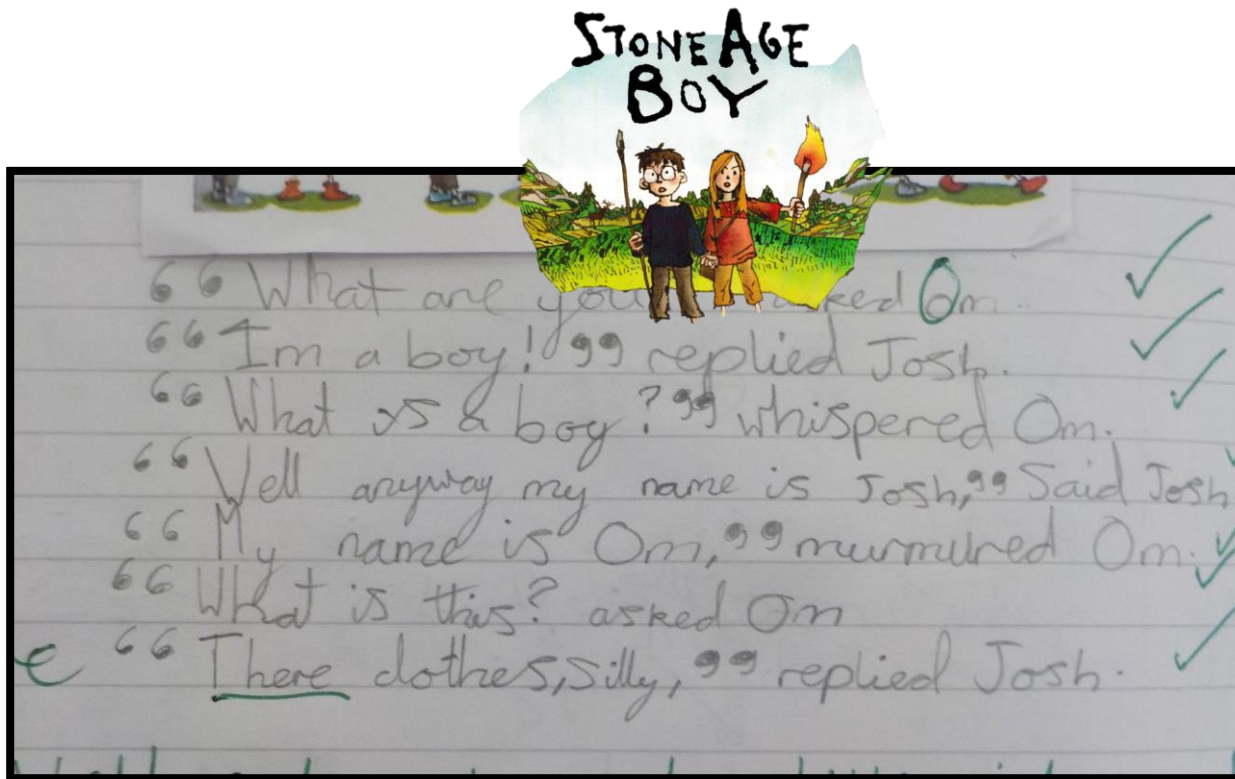 STONE AGE
BOY
66 What are you asked Om.
66 Im a boy! 99 replied Josh.
66 What is a boy? 99 whispered Om.
66 Well anyway my name is Josh, 99 Said Josh
66 My name is Om, 99 murmured Om.
66 What is this? asked Om
e 66 There clothes, silly, 99 replied Josh.